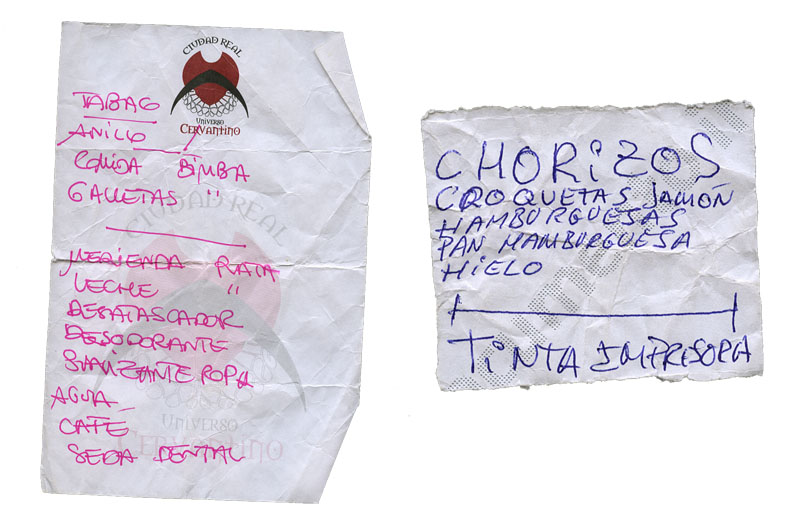 CIUDAD REAL
UNIVERSO
CERVANTINO
TABACO
ANILLO
COMIDA BIMBA
GALLETAS "
CIUDAD REAL
MERIENDA RATA
LECHE "
DESATASCADOR
DESODORANTE
SUAVIZANTE ROPA
AGUA
CAFE
SEDA DENTAL
UNIVERSO
CERVANTINO
CHORIZOS
CROQUETAS JAMÓN
HAMBURGUESAS
PAN HAMBURGUESA
HIELO
TINTA IMPRESORA